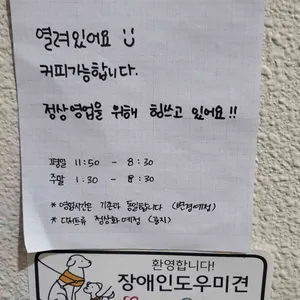 열려있어요 :)
커피가능합니다.
정상영업을 위해 힘쓰고 있어요!!
평일 11:50 - 8:30
주말 1:30 - 8:30
* 영업시간은 기존과 동일합니다 (변경예정)
* 디저트류 정상화예정 (공지)
환영합니다!
장애인도우미견